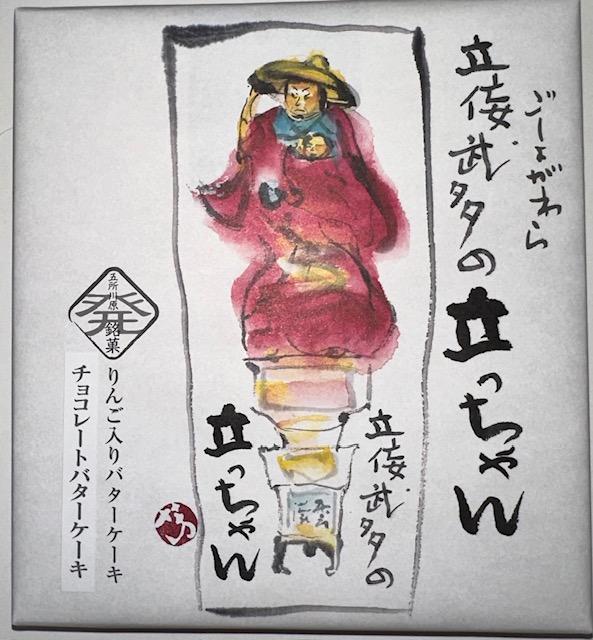 ごしょがわら
立佞武多の
立っちゃん
立佞武多の
立っちゃん
五所川原
発
銘菓
りんご入りバターケーキ
チョコレートバターケーキ